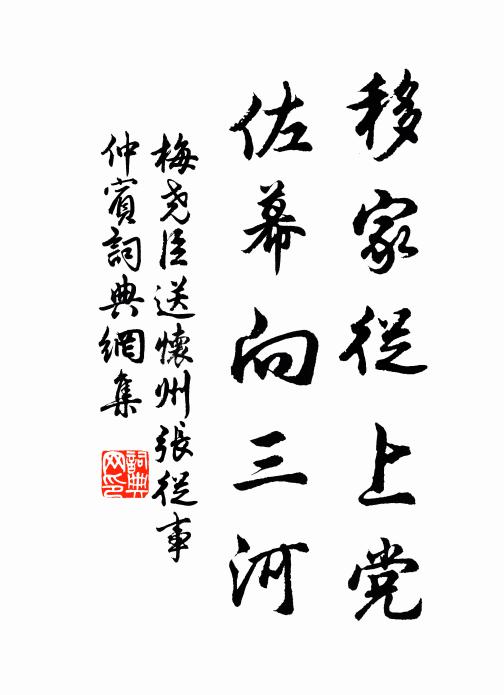 移家從上党
佐幕向三河
梅尧臣送懷州張從事
仲賓詞典網集
詞典网印